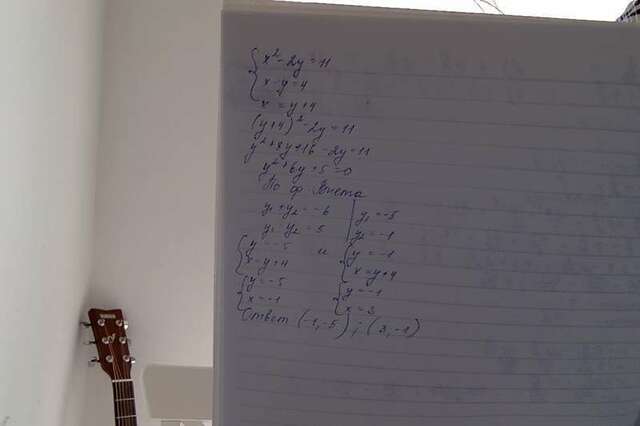 x² - 2y = 11
x - y = 4
x = y + 4
(y+4)² - 2y = 11
y² + 8y + 16 - 2y = 11
y² + 6y + 5 = 0
По ф Виета
y₁ + y₂ = -6 y₁ = -5
y₁ y₂ = 5 y₂ = -1
y = -5 и y = -1
x = y + 4 x = y + 4
y = -5 y = -1
x = -1 x = 3
Ответ (-1, -5) ; (3, -1)